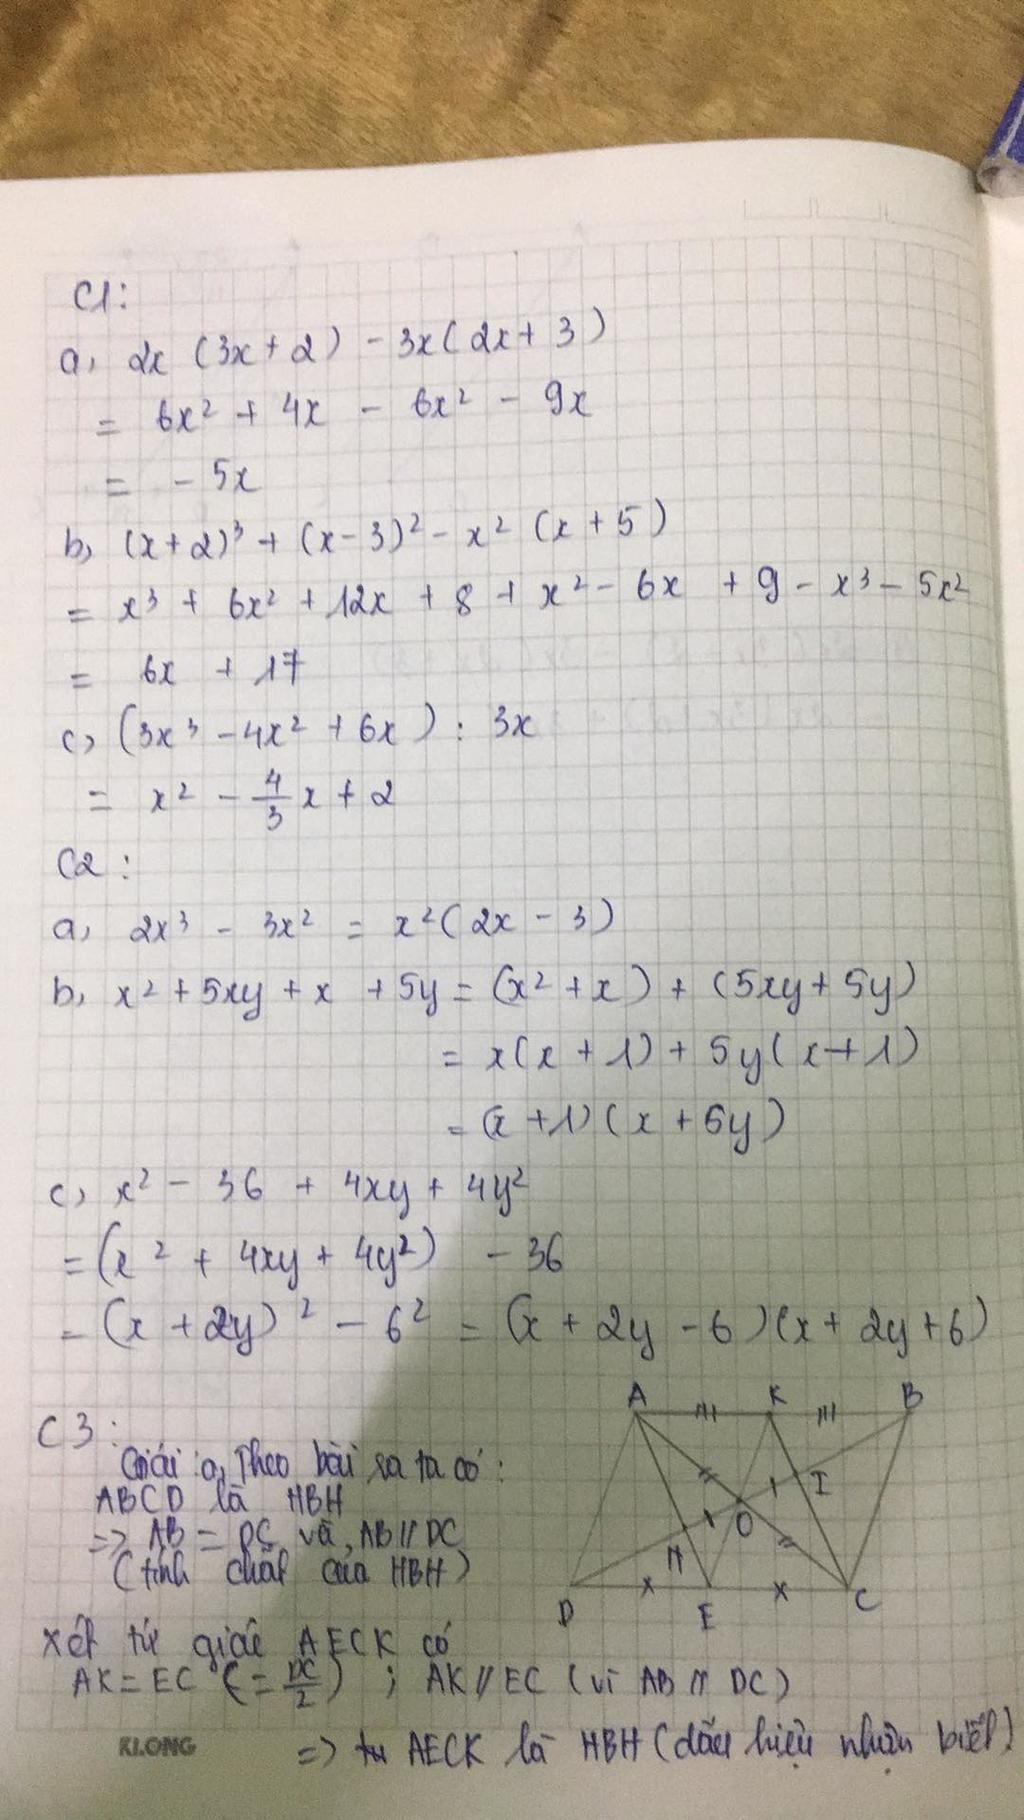 C1:
a, 2x (3x + 2) - 3x(2x + 3)
= 6x² + 4x - 6x² - 9x
= - 5x
b, (x + 2)³ + (x - 3)² - x² (x + 5)
= x³ + 6x² + 12x + 8 + x² - 6x + 9 - x³ - 5x²
= 6x + 17
c, (3x³ - 4x² + 6x) : 3x
= x² - 4/3 x + 2
C2 :
a, 2x³ - 3x² = x²(2x - 3)
b, x² + 5xy + x + 5y = (x² + x) + (5xy + 5y)
= x(x + 1) + 5y(x + 1)
= (x + 1)(x + 5y)
c, x² - 36 + 4xy + 4y²
= (x² + 4xy + 4y²) - 36
= (x + 2y)² - 6² = (x + 2y - 6)(x + 2y + 6)
A K B
C3 :
Giải : a, Theo bài ra ta có :
I
ABCD là HBH
O
=> AB = DC và, AB // DC
(tính chất của HBH)
H
D E C
Xét tứ giác AECK có
AK = EC (= DC/2) ; AK // EC (vì AB // DC)
=> AECK là HBH (dấu hiệu nhận biết)
KLONG